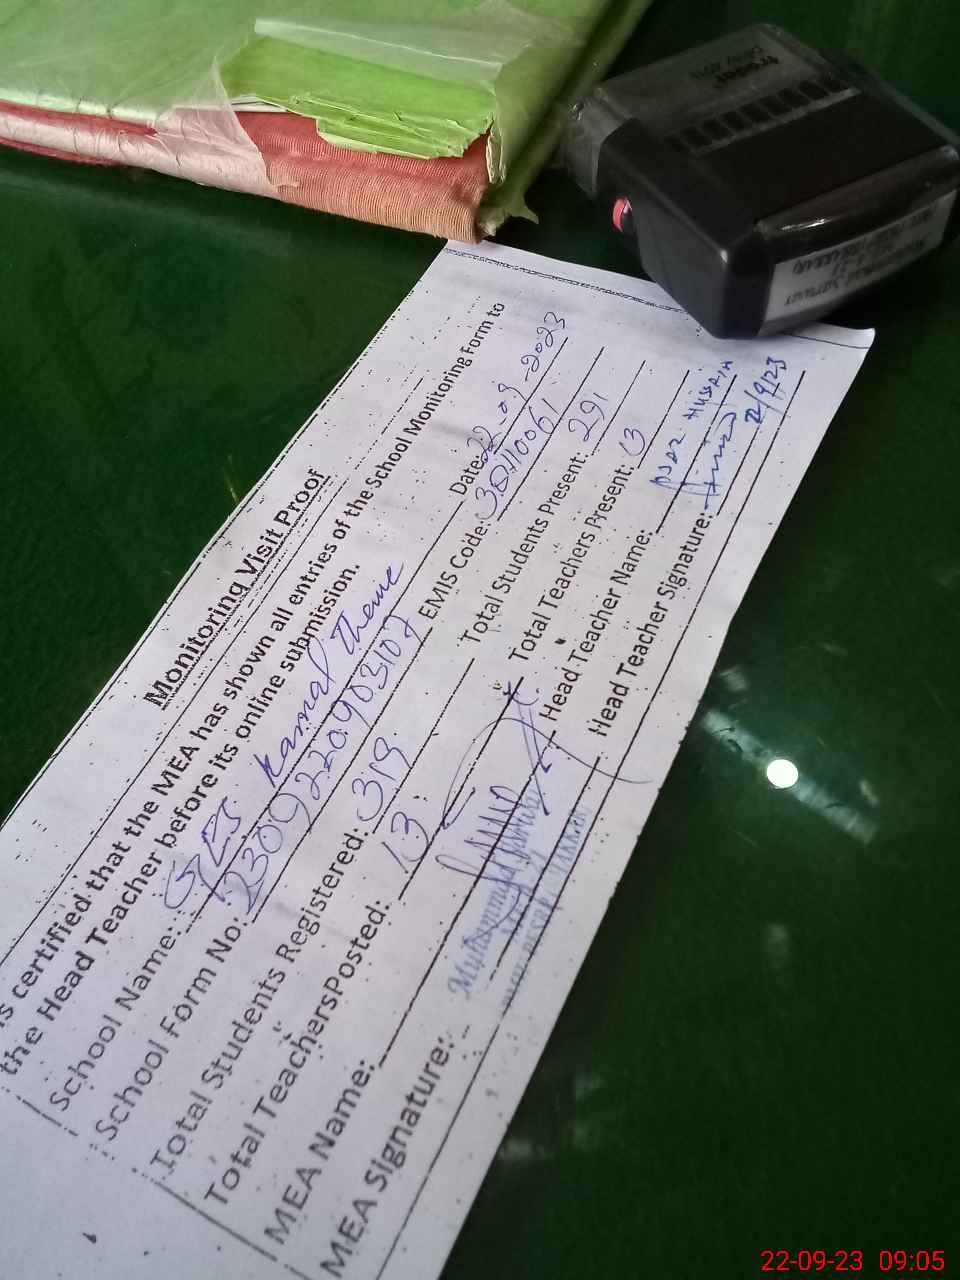 Monitoring Visit Proof
is certified that the MEA has shown all entries of the School Monitoring Form to
the Head Teacher before its online submission.
School Name: GES Kamal Theme Date: 22-09-2023
School Form No: 2309220903107 EMIS Code: 38110061
Total Students Registered: 319 Total Students Present: 291
Total TeachersPosted: 13 Total Teachers Present: 13
MEA Name: Muhammad Head Teacher Name: HUSSAIN
MEA Signature: Head Teacher Signature: 22/9/23
22-09-23 09:05